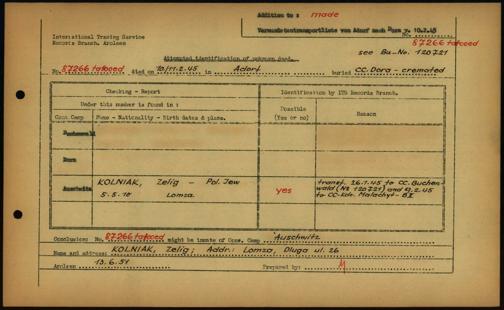 Addition to : made
Versandtotentransportliste von Adorf nach Dora v. 10.2.45
International Tracing Service
Records Branch, Arolsen
87266 tatooed
see Bu.-No. 120721
Attempted identification of unknown dead.
No. 87266 tatooed died on 10/11.2.45 in Adorf buried CC. Dora - cremated
Checking - Report
Identification by ITS Records Branch.
Under this number is found in :
Possible
(Yes or no)
Reason
Conc. Camp
Name - Nationality - Birth dates & place.
Buchenwald
Dora
Auschwitz
KOLNIAK, Zelig - Pol. Jew
5.5.10 Lomza
yes
transf. 26.1.45 to CC. Buchen-
wald (No 120721) and 9.2.45
to CC-Kdo. Malachyt - BII
Conclusion: No. 87266 tatooed might be inmate of Conc. Camp Auschwitz
Name and address: KOLNIAK, Zelig; Addr.: Lomza, Dluga ul. 26
Arolsen 13.6.51 Prepared by: